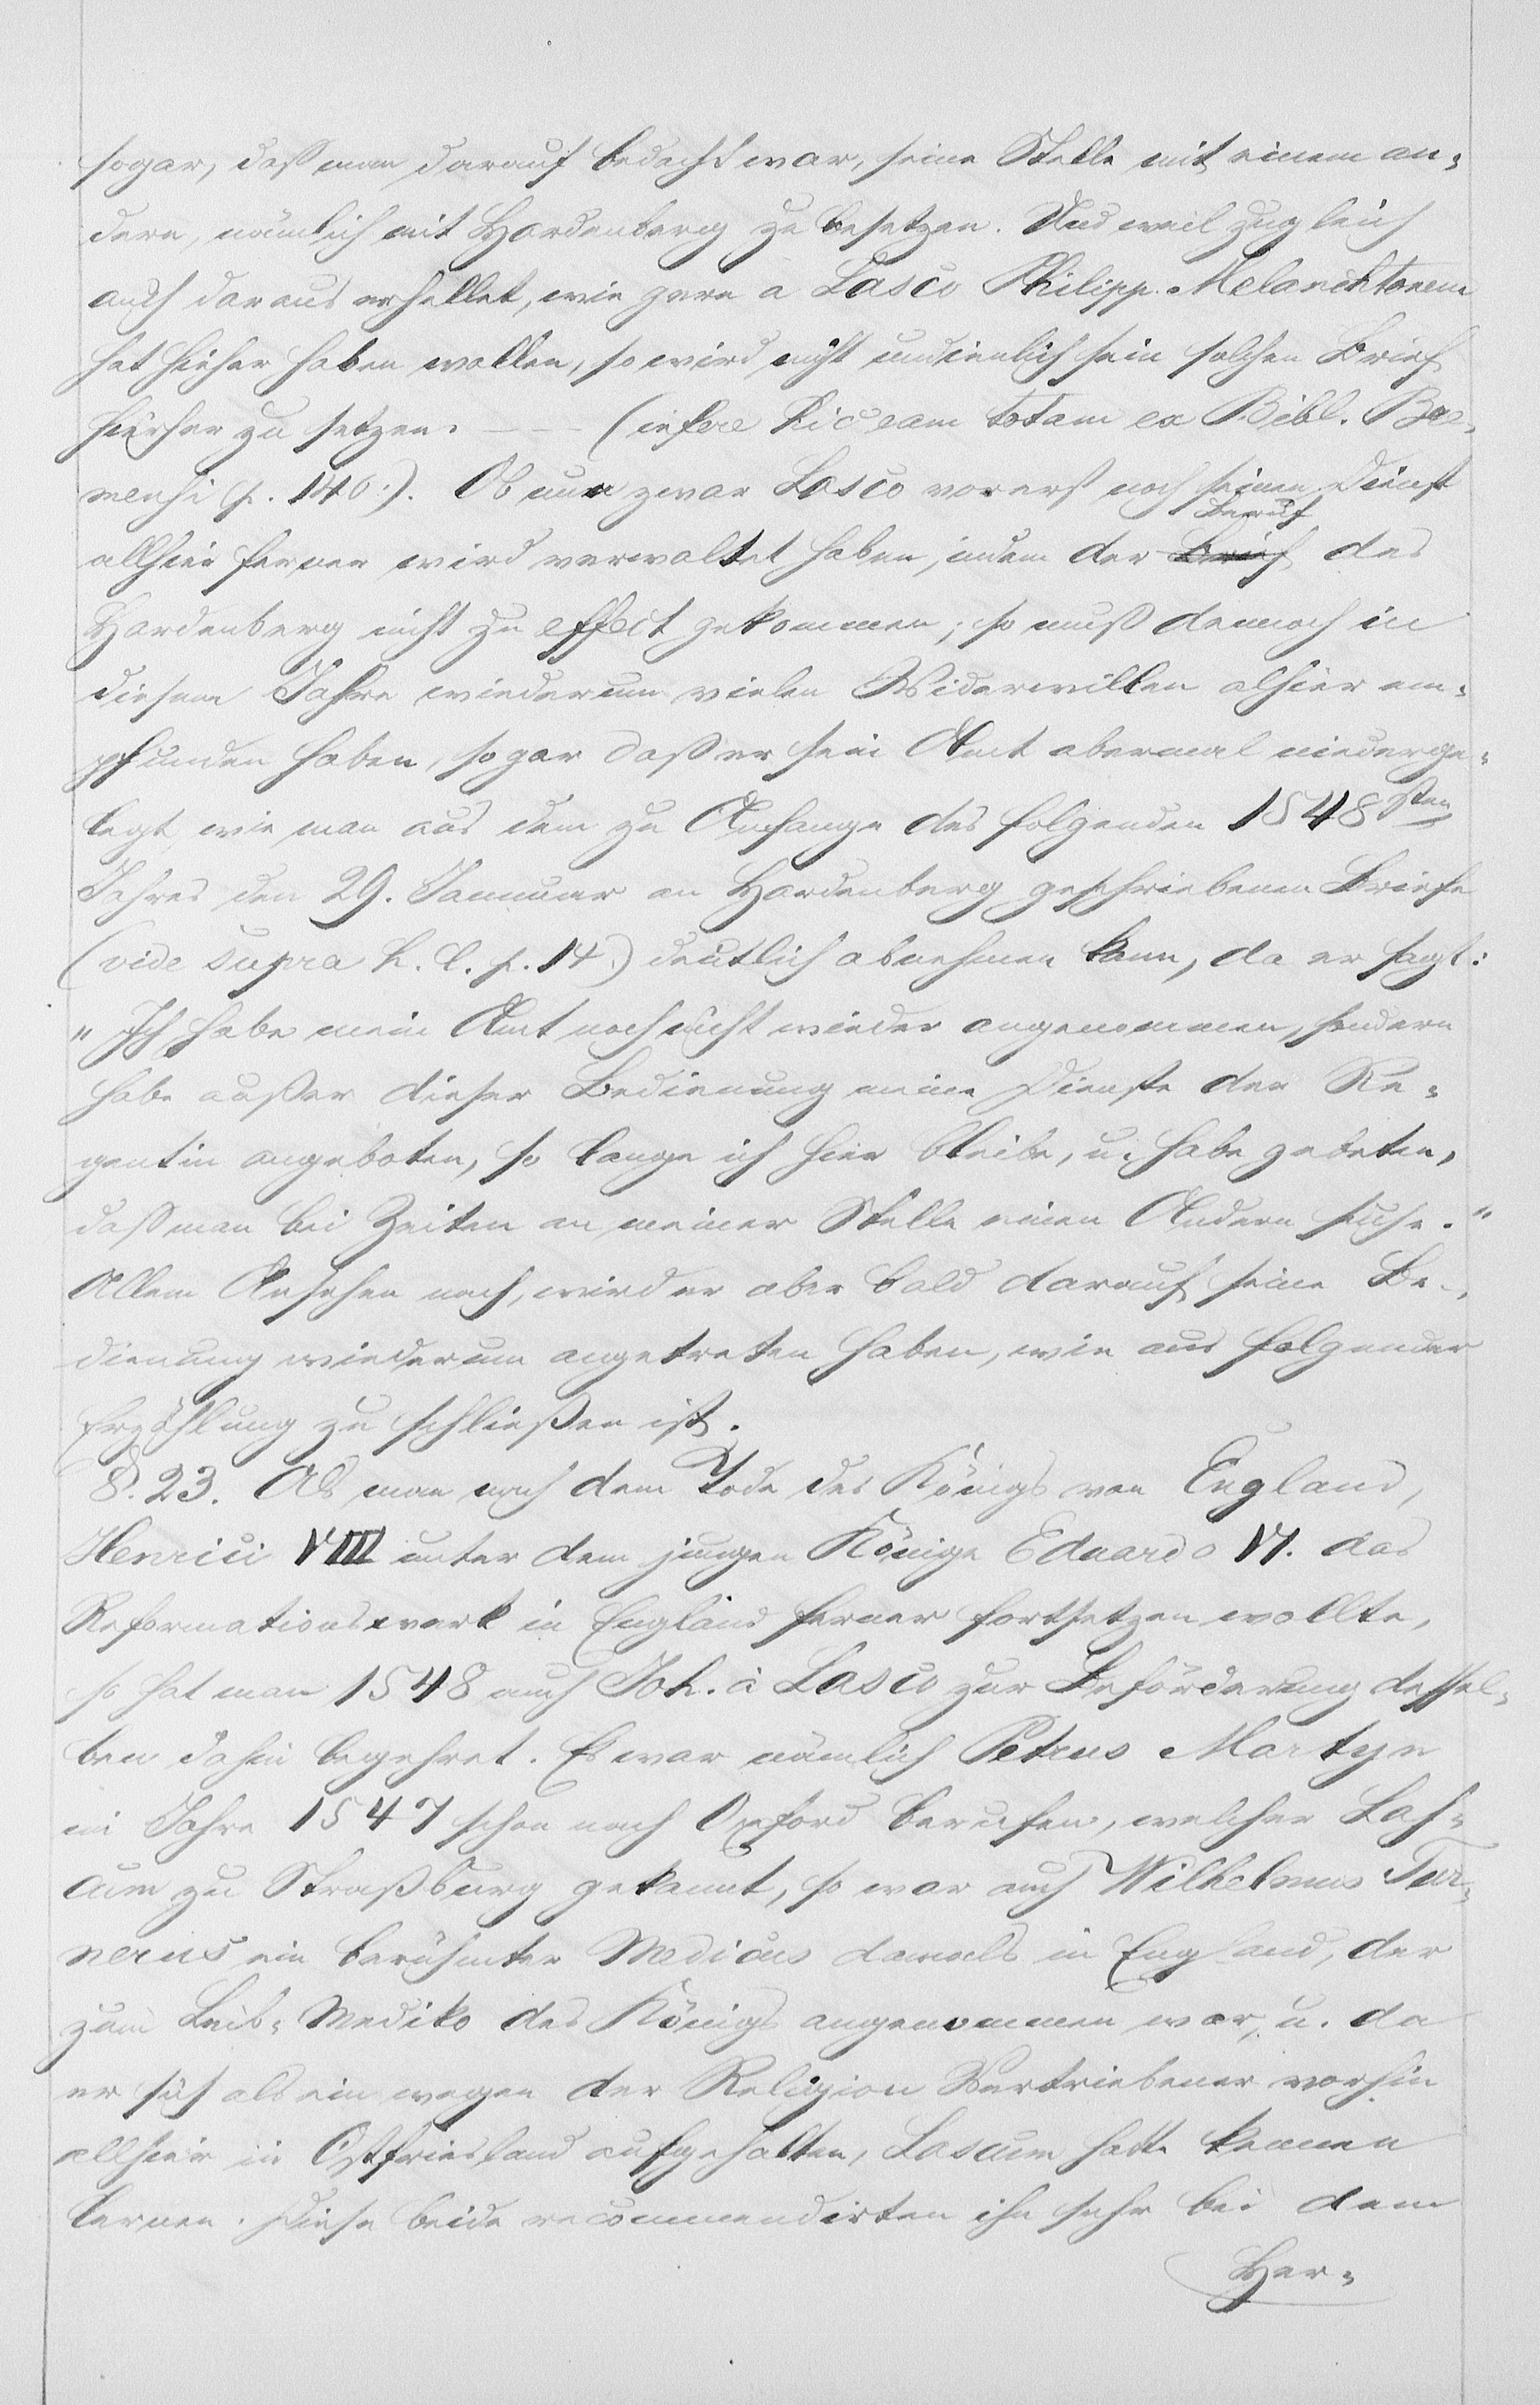 sogar, daß man darauf bedacht war, seine Stelle mit einem an-
dern, nämlich mit Hardenberg zu besetzen. Und weil zugleich
auch daraus erhellet, wie gern a Lasco Philipp. Melanchtonem
hat hieher haben wollen, so wird nicht undienlich sein solchen Brief
hierher zu setzen. — (infere hic eam totam ex Bibl. Bre-
mensi p. 140.). Ob nun zwar Lasco vorerst noch seinen Dienst
allhier ferner wird verwaltet haben, indem der Beruf des
Hardenberg nicht zu effect gekommen; so muß dennoch in
diesem Jahre wiederum vielen Widerwillen alhier em-
pfunden haben, sogar daß er sein Amt abermal niederge-
legt wie man aus dem zu Anfange des folgenden 1548sten
Jahres den 29. Januar an Hardenberg geschriebenen Briefe
(vide supra h. l. p. 14.) deutlich abnehmen kann, da er sagt:
"Ich habe mein Amt noch nicht wieder angenommen, sondern
habe außer dieser Bedienung meine Dienste der Re-
gentin angeboten, so lange ich hier bleibe, u. habe gebeten,
daß man bei Zeiten an meiner Stelle einen Andern suche."
Allem Ansehen nach, wird er aber bald darauf seine Be-
dienung wiederum angetreten haben, wie aus folgender
Erzählung zu schließen ist.
§. 23. Als man nach dem Tode des Königs von England,
Henrici VIII unter dem jungen Könige Eduardo VI. das
Reformationswerk in England ferner fortsetzen wollte,
so hat man 1548 auch Joh. à Lasco zur Beförderung dessel-
ben dahin begehret. Es war nämlich Petrus Martyr
im Jahre 1547 schon nach Oxford berufen, welcher Las-
cum zu Straßburg gekannt, so war auch Wilhelmus Tur-
nerus ein berühmter Medicus damals in England, der
zum Leib-Mediko des Königs angenommen war, u. da
er sich als ein wegen der Religion Vertriebener vorhin
allhier in Ostfriesland aufgehalten, Lascum hatte kennen
lernen. Diese beide recommendirten ihn sehr bei dem
Her-